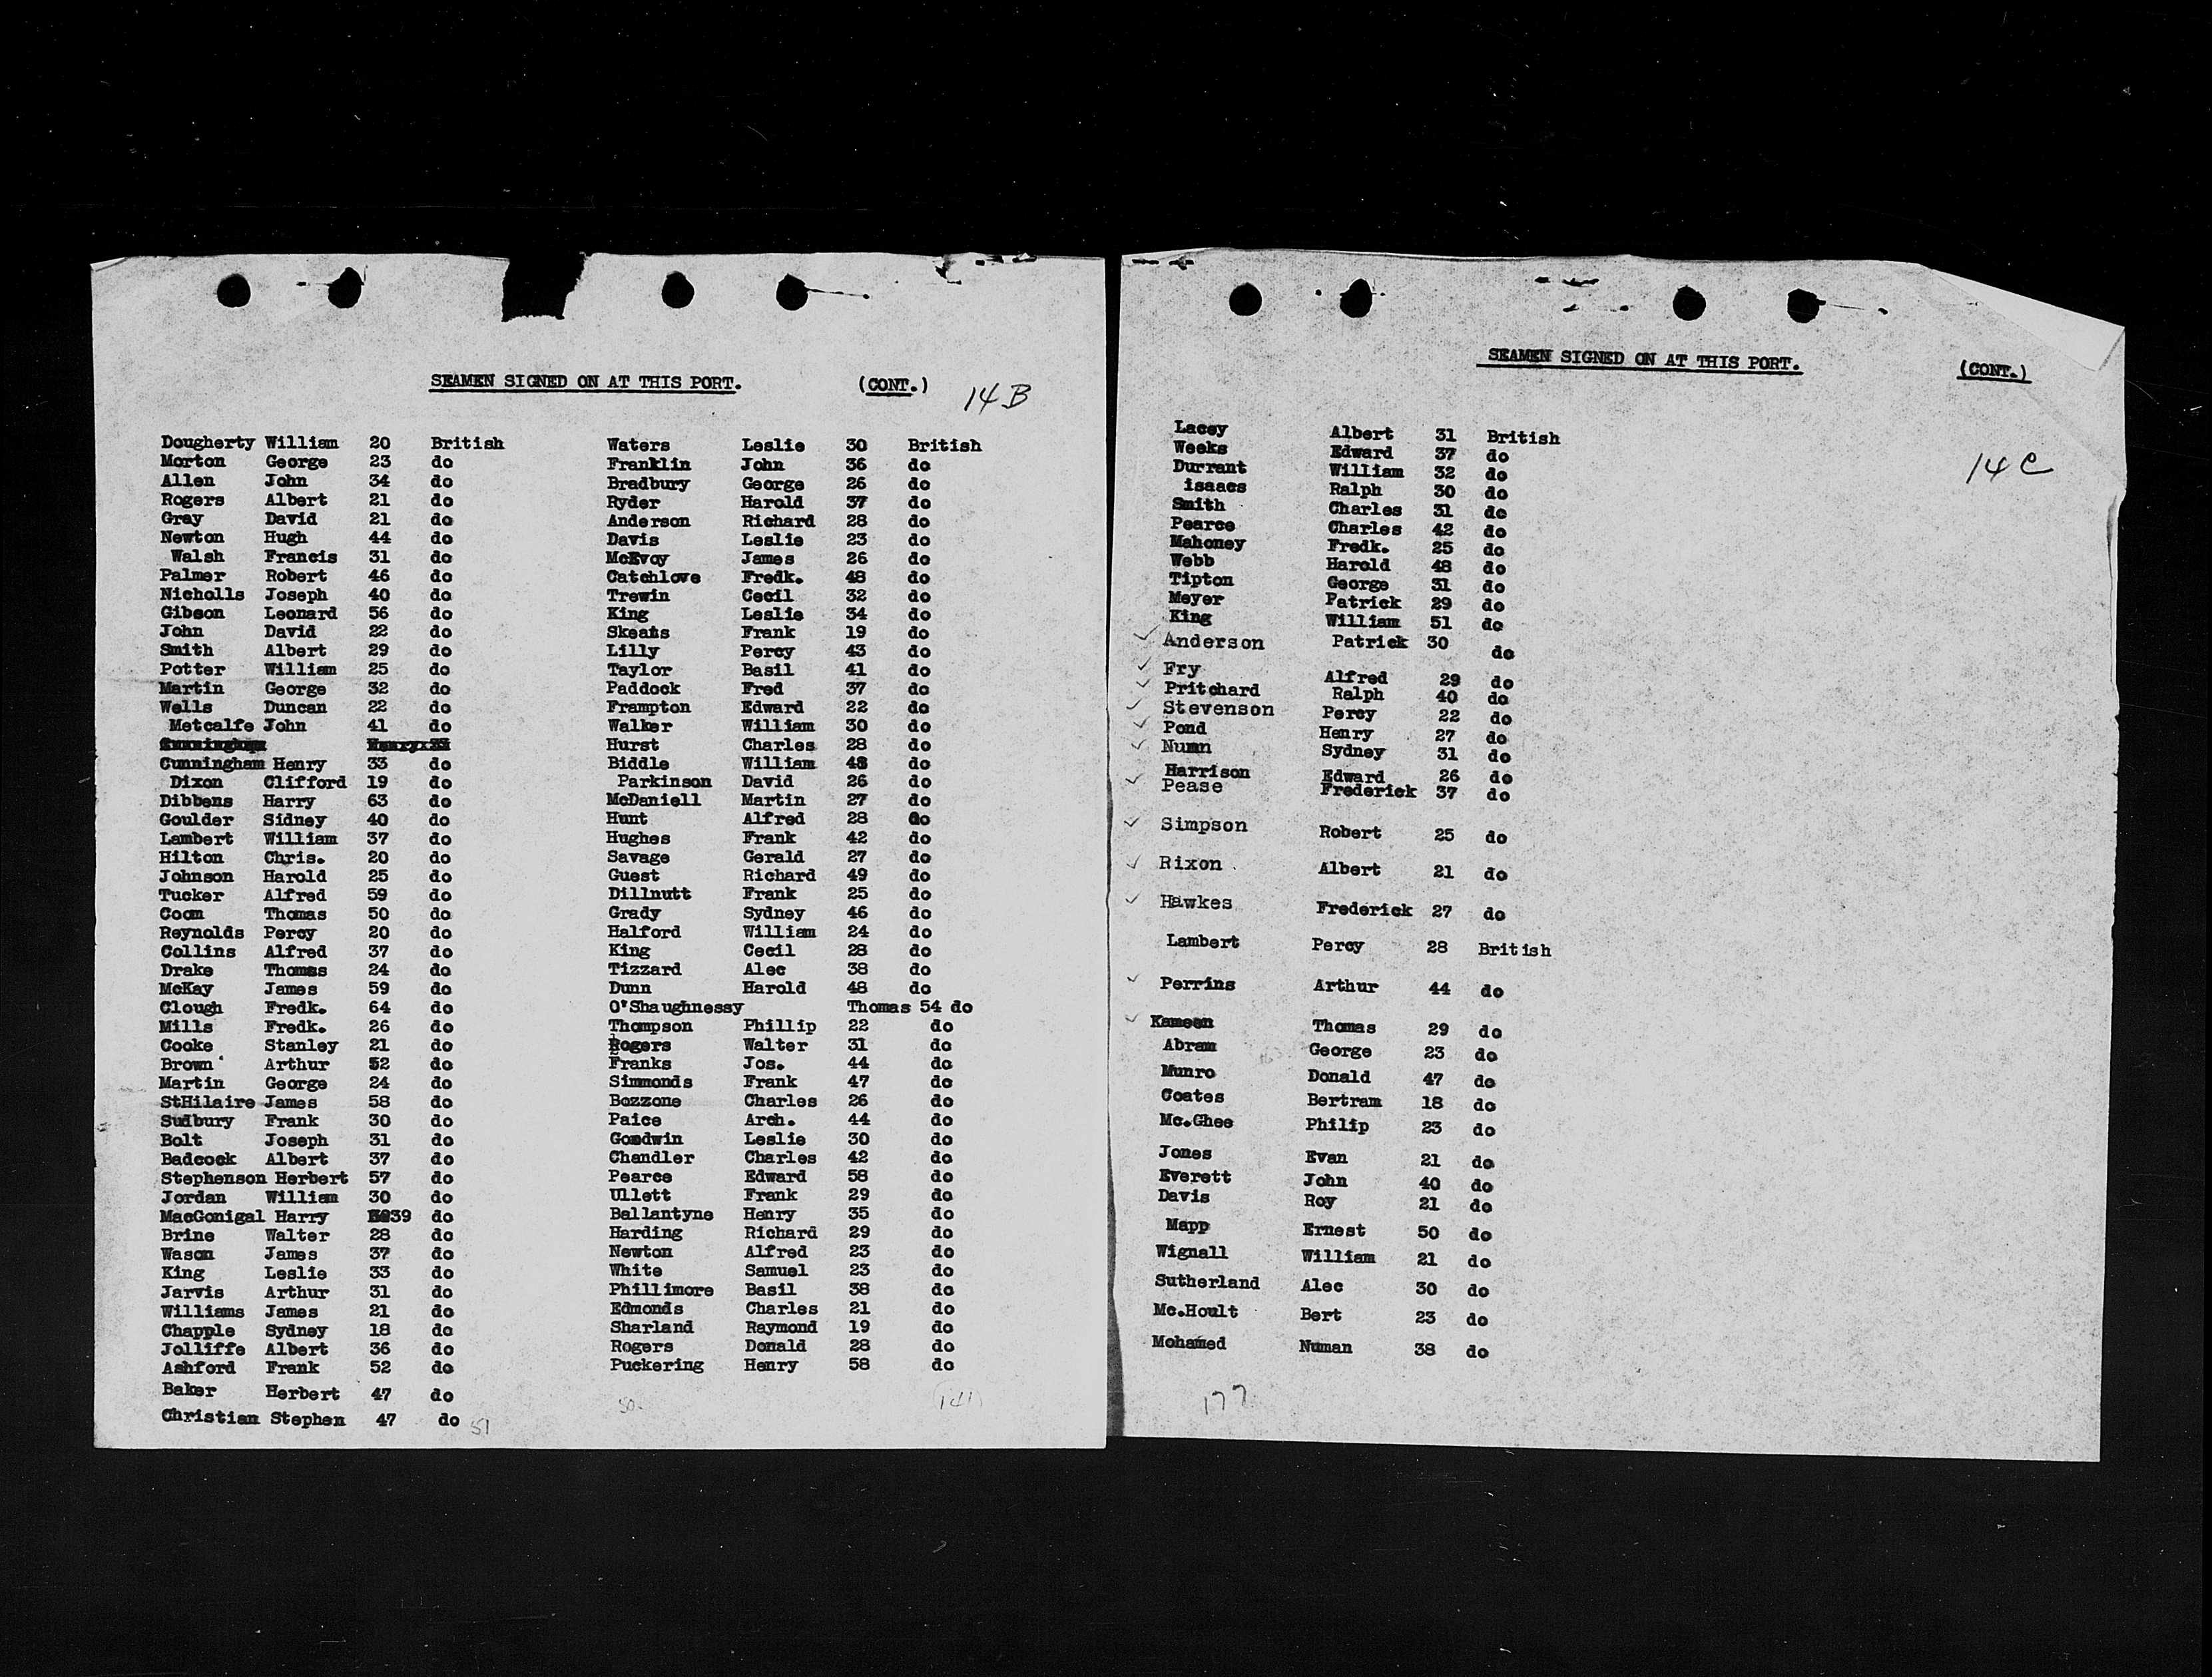 SEAMEN SIGNED ON AT THIS PORT. (CONT.) 14 B
Dougherty William 20 British
Morton George 23 do
Allen John 34 do
Rogers Albert 21 do
Gray David 21 do
Newton Hugh 44 do
Walsh Francis 31 do
Palmer Robert 46 do
Nicholls Joseph 40 do
Gibson Leonard 56 do
John David 22 do
Smith Albert 29 do
Potter William 25 do
Martin George 32 do
Wells Duncan 22 do
Metcalfe John 41 do
Cunningham Henry 33 do
Dixon Clifford 19 do
Dibbens Harry 63 do
Goulder Sidney 40 do
Lambert William 37 do
Hilton Chris. 20 do
Johnson Harold 25 do
Tucker Alfred 59 do
Coom Thomas 50 do
Reynolds Percy 20 do
Collins Alfred 37 do
Drake Thomas 24 do
McKay James 59 do
Clough Fredk. 64 do
Mills Fredk. 26 do
Cooke Stanley 21 do
Brown Arthur 52 do
Martin George 24 do
StHilaire James 58 do
Sudbury Frank 30 do
Bolt Joseph 31 do
Badcock Albert 37 do
Stephenson Herbert 57 do
Jordan William 30 do
MacGonigal Harry 39 do
Brine Walter 28 do
Wason James 37 do
King Leslie 33 do
Jarvis Arthur 31 do
Williams James 21 do
Chapple Sydney 18 do
Jolliffe Albert 36 do
Ashford Frank 52 do
Baker Herbert 47 do
Christian Stephen 47 do
51
Waters Leslie 30 British
Franklin John 36 do
Bradbury George 26 do
Ryder Harold 37 do
Anderson Richard 28 do
Davis Leslie 23 do
McEvoy James 26 do
Catchlove Fredk. 48 do
Trewin Cecil 32 do
King Leslie 34 do
Skeats Frank 19 do
Lilly Percy 43 do
Taylor Basil 41 do
Paddock Fred 37 do
Frampton Edward 22 do
Walker William 30 do
Hurst Charles 28 do
Biddle William 48 do
Parkinson David 26 do
McDaniell Martin 27 do
Hunt Alfred 28 do
Hughes Frank 42 do
Savage Gerald 27 do
Guest Richard 49 do
Dillnutt Frank 25 do
Grady Sydney 46 do
Halford William 24 do
King Cecil 28 do
Tizzard Alec 38 do
Dunn Harold 48 do
O'Shaughnessy Thomas 54 do
Thompson Phillip 22 do
Rogers Walter 31 do
Franks Jos. 44 do
Simmonds Frank 47 do
Bozzone Charles 26 do
Paice Arch. 44 do
Goodwin Leslie 30 do
Chandler Charles 42 do
Pearce Edward 58 do
Ullett Frank 29 do
Ballantyne Henry 35 do
Harding Richard 29 do
Newton Alfred 23 do
White Samuel 23 do
Phillimore Basil 38 do
Edmonds Charles 21 do
Sharland Raymond 19 do
Rogers Donald 28 do
Puckering Henry 58 do
50 141
SEAMEN SIGNED ON AT THIS PORT. (CONT.)
14 C
Lacey Albert 31 British
Weeks Edward 37 do
Durrant William 32 do
isaacs Ralph 30 do
Smith Charles 31 do
Pearce Charles 42 do
Mahoney Fredk. 25 do
Webb Harold 48 do
Tipton George 31 do
Meyer Patrick 29 do
King William 51 do
✓ Anderson Patrick 30 do
✓ Fry Alfred 29 do
✓ Pritchard Ralph 40 do
✓ Stevenson Percy 22 do
✓ Pond Henry 27 do
✓ Nunn Sydney 31 do
Harrison Edward 26 do
✓ Pease Frederick 37 do
✓ Simpson Robert 25 do
✓ Rixon Albert 21 do
✓ Hawkes Frederick 27 do
Lambert Percy 28 British
✓ Perrins Arthur 44 do
✓ Kameen Thomas 29 do
Abram George 23 do
Munro Donald 47 do
Coates Bertram 18 do
Mc.Ghee Philip 23 do
Jones Evan 21 do
Everett John 40 do
Davis Roy 21 do
Mapp Ernest 50 do
Wignall William 21 do
Sutherland Alec 30 do
Mc.Hoult Bert 23 do
Mohamed Numan 38 do
177